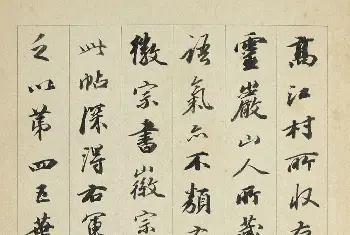 高江村所收右
靈巖山人所藏
語氣亦不類
徽宗書嶶宗
此帖深得右軍
之以第四五葉